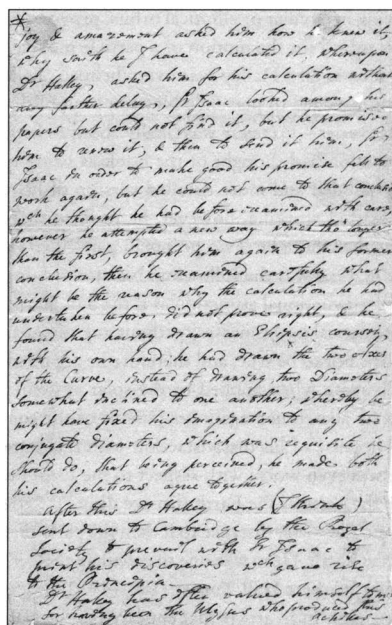 *
joy & amazement asked him how he knew it,
Why saith he I have calculated it, whereupon
Dr Halley, asked him for his calculation without
any farther delay, Sr Isaac looked among his
papers but could not find it, but he promised
him to renew it, & then to send it him, Sr
Isaac in order to make good his promise fell to
work again, but he could not come to that conclusion
wch he thought he had before examined with care,
however he attempted a new way which tho longer
than the first, brought him again to his former
conclusion, then he examined carefully what
might be the reason why the calculation he had
undertaken before did not prove right, & he
found that having drawn an Elipsis coursely
with his own hand, he had drawn the two Axes
of the Curve, instead of drawing two Diameters
somewhat inclined to one another, whereby he
might have fixed his imagination to any two
conjugate diameters, which was requisite he
should do, that being perceived, he made both
his calculations agree together.
After this Dr Halley was (I think)
sent down to Cambridge by the Royal
Society to prevail with Sr Isaac to
print his discoveries wch gave rise
to the Principia
Dr Halley has often valued himself to me
for having been the Ulysses who produced this
Achilles